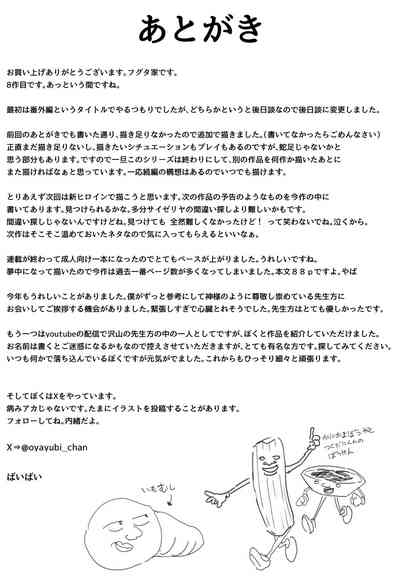 あとがき
お買い上げありがとうございます。フグタ家です。
8作目です。あっという間ですね。
最初は番外編というタイトルでやるつもりでしたが、どちらかというと後日談なので後日談に変更しました。
前回のあとがきでも書いた通り、描き足りなかったので追加で描きました。(書いてなかったらごめんなさい)
正直まだ描き足りないし、描きたいシチュエーションもプレイもあるのですが、蛇足じゃないかと
思う部分もあります。ですので一旦このシリーズは終わりにして、別の作品を何作か描いたあとに
また描ければなぁと思っています。一応続編の構想はあるのでいつでも描けます。
とりあえず次回は新ヒロインで描こうと思います。次の作品の予告のようなものを今作の中に
書いてあります。見つけられるかな。多分サイゼリヤの間違い探しより難しいかもです。
間違い探しじゃないんですけどね。見つけても 全然難しくなかったけど！ って笑わないでね。泣くから。
次作はそこそこ温めておいたネタなので気に入ってもらえるといいなぁ。
連載が終わって成人向け一本になったのでとてもペースが上がりました。うれしいですね。
夢中になって描いたので今作は過去一番ページ数が多くなってしまいました。本文88pですよ。やば
今年もうれしいことがありました。僕がずっと参考にして神様のように尊敬し崇めている先生方に
お会いしてご挨拶する機会がありました。緊張しすぎで心臓とれそうでした。先生方はとても優しかったです。
もう一つはyoutubeの配信で沢山の先生方の中の一人としてですが、ぼくと作品を紹介していただけました。
お名前は書くとご迷惑になるかもなので控えさせていただきますが、とても有名な方です。探してみてください。
いつも何かで落ち込んでいるぼくですが元気がでました。これからもひっそり細々と頑張ります。
そしてぼくはXをやっています。
病みアカじゃないです。たまにイラストを投稿することがあります。
フォローしてね。内緒だよ。
X⇒@oyayubi_chan
ばいばい
いもむし